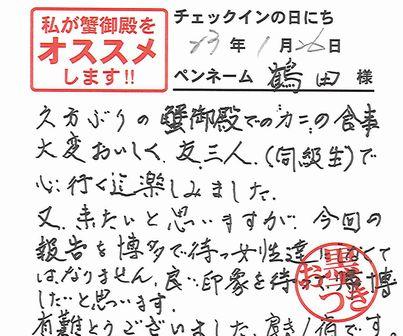 私が蟹御殿を
オススメ
します!!
チェックインの日にち
23年1月26日
ペンネーム 鶴田 様
久方ぶりの蟹御殿でのカニの食事
大変おいしく、友、三人、(同級生)で
心行く迄楽しみました。
又、来たいと思いますが、今回の
報告を博多で待つ女性達になくて
はなりません、良い印象を待って
したと思います。
有難とうございました、
お墨
つき